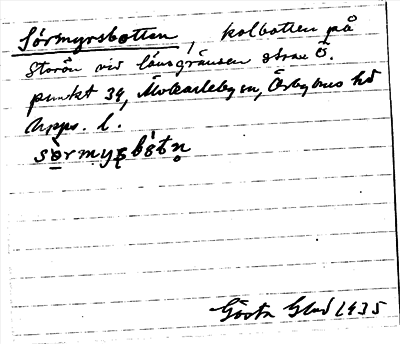 Sörmyrsbotten, kolbotten på
Storön vid länsgränsen strax Ö.
punkt 34, Älvkarleby sn, Örbyhus hd
Upps. l.
sörmyʂbòtn̥
Gösta Glad 1935